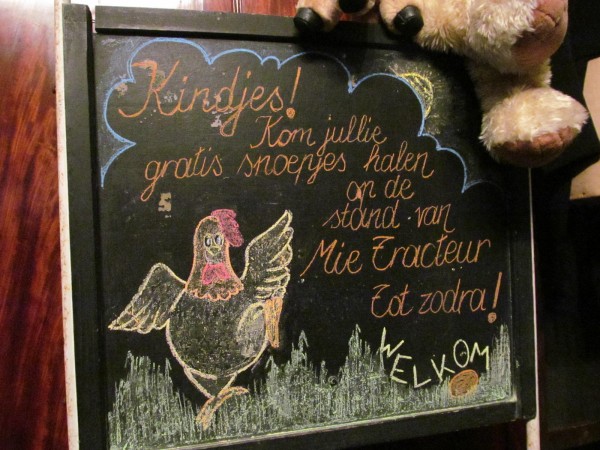 Kindjes!
Kom jullie
gratis snoepjes halen
op de
stand van
Mie Tracteur
Tot zodra!
WELKOM